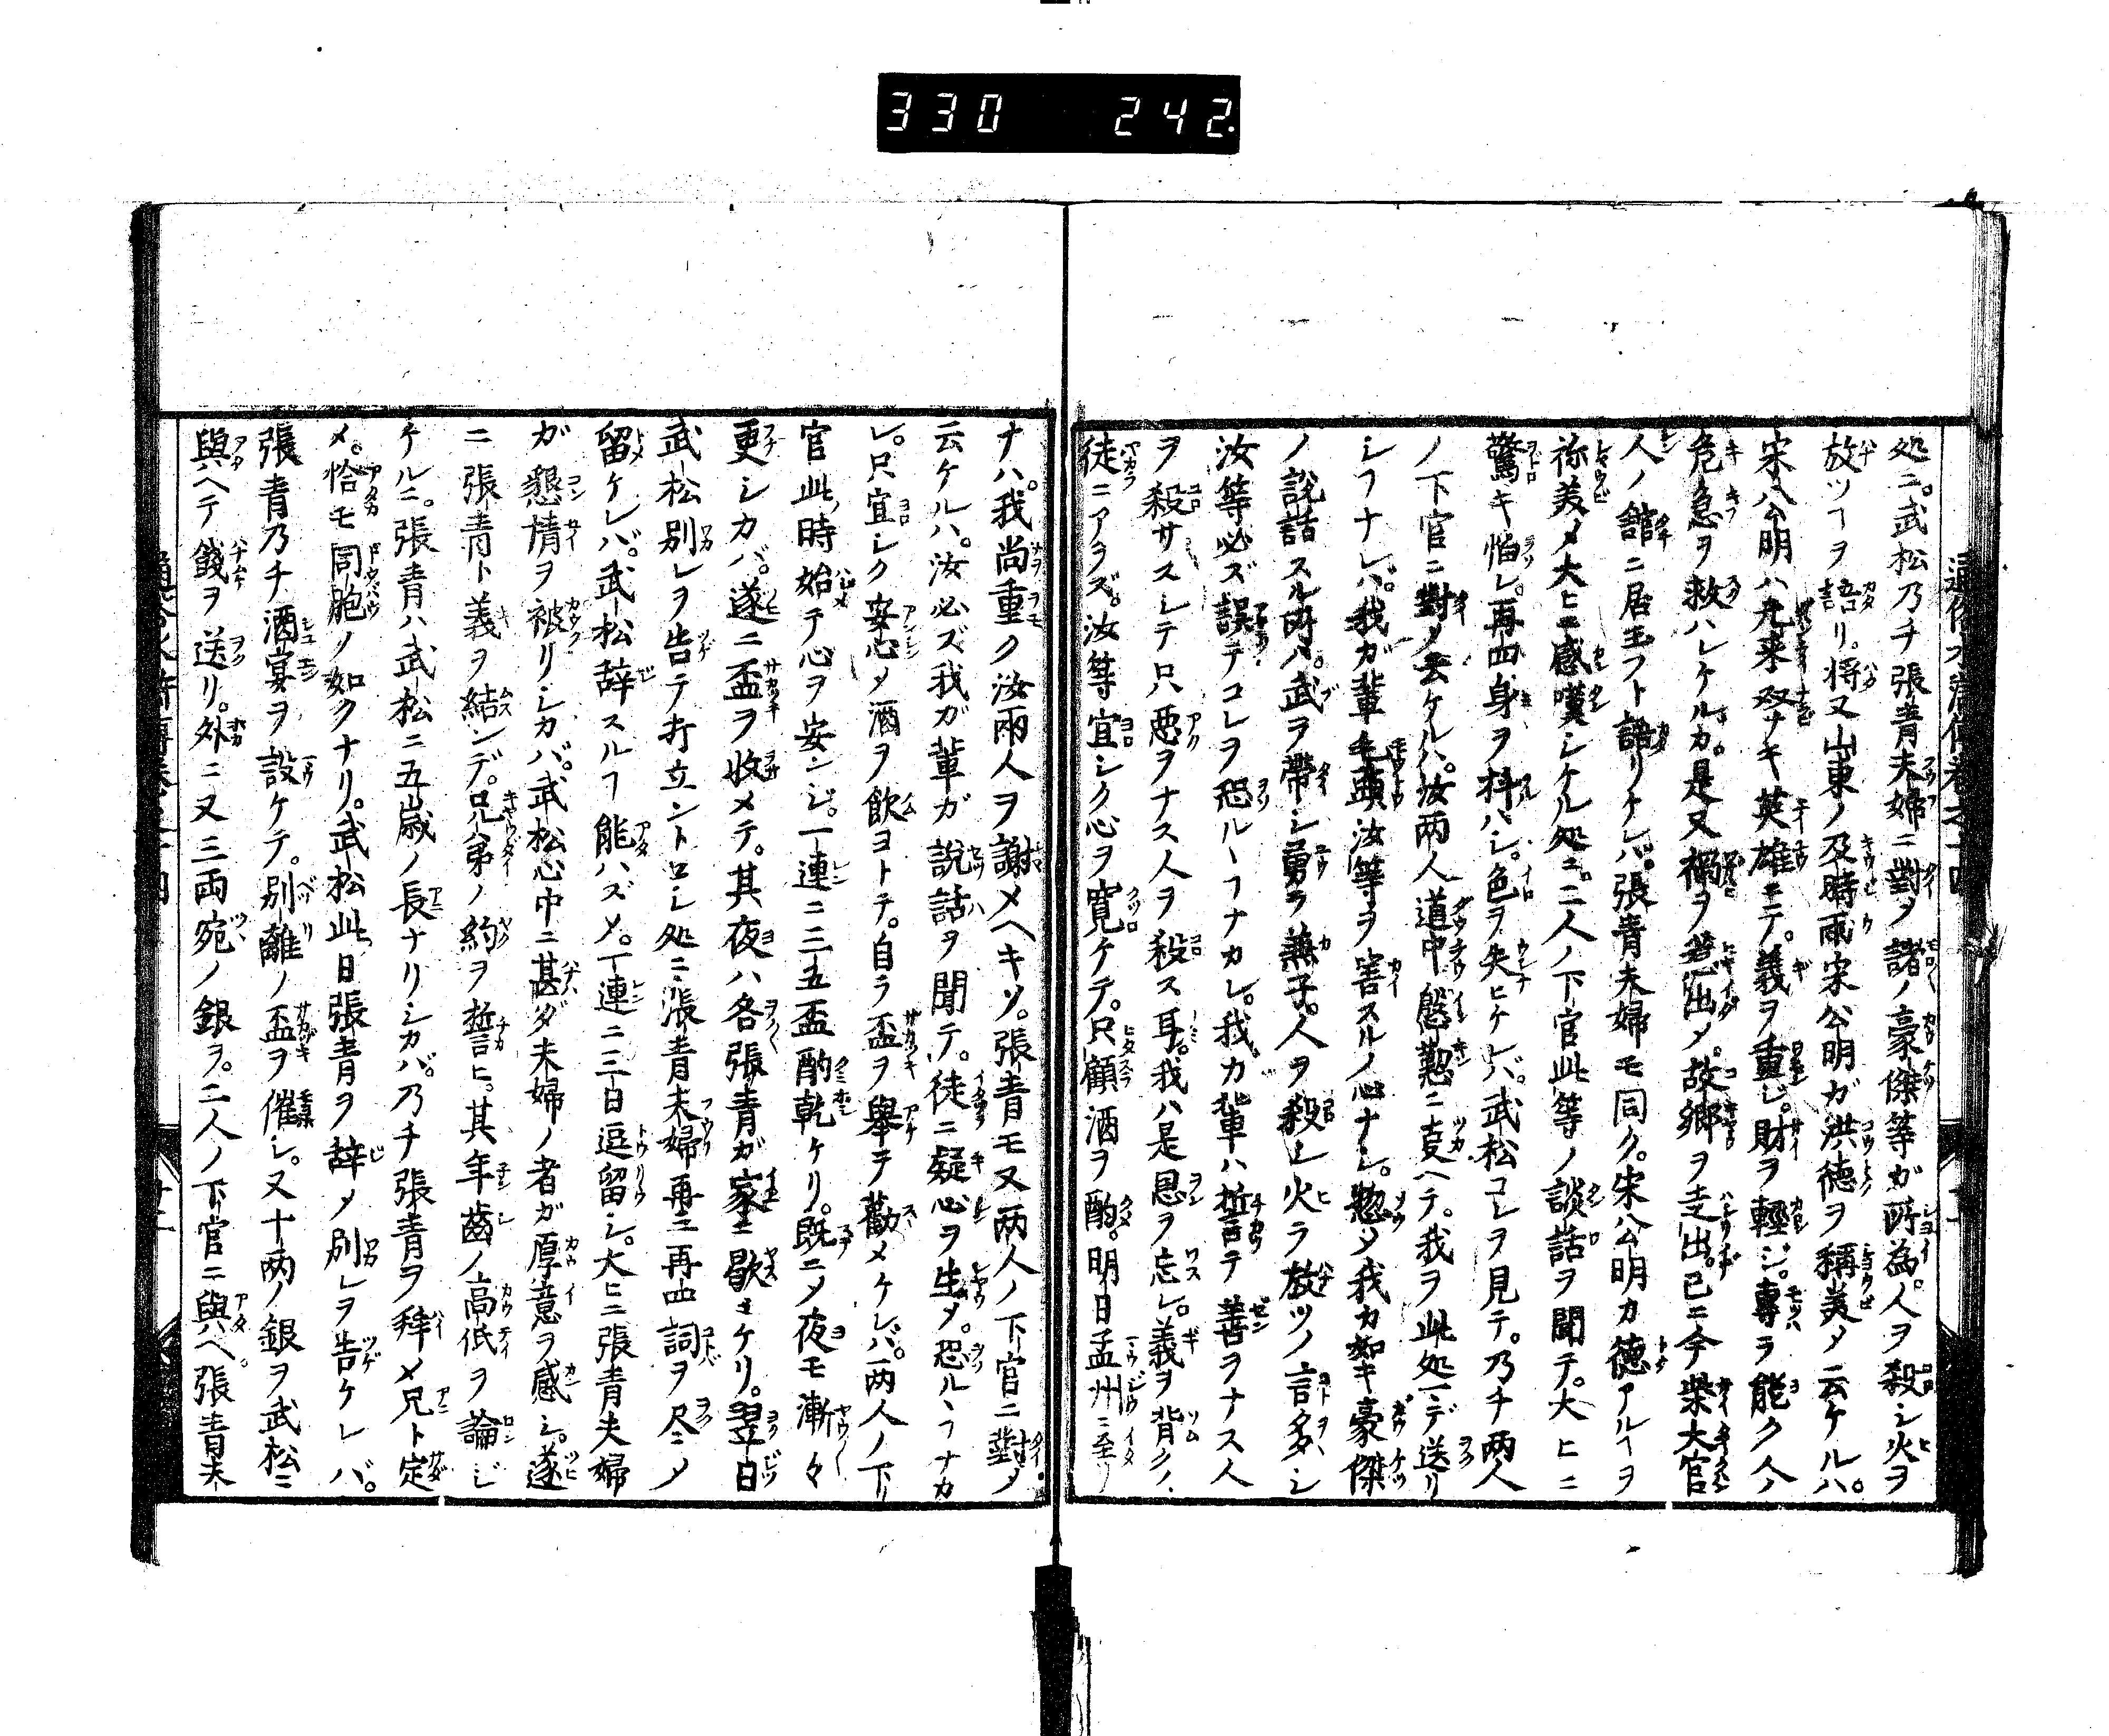 330 242
処ニ。武松乃チ張青夫婦ニ對〆諸ノ豪傑等ガ所為。人ヲ殺シ火ヲ
放ツヿヲ語リ。将又山東ノ及時雨宋公明ガ洪徳ヲ稱美〆云ケルハ。
宋公明ハ元来双ナキ英雄ニテ。義ヲ重ジ。財ヲ輕ジ。專ラ能ク人ノ
危急ヲ救ハレケルカ。是又禍ヲ惹出〆。故郷ヲ走出。已ニ今柴大官
人ノ館ニ居玉フト語リケレバ。張青夫婦モ同ク。宋公明カ徳アルヿヲ
称美〆大ヒニ感嘆シケル処ニ。二人ノ下官此等ノ談話ヲ聞テ。大ヒニ
驚キ怕レ。再四身ヲ抖ハシ。色ヲ失ヒケレバ。武松コレヲ見テ。乃チ両人
ノ下官ニ對〆云ケルハ。汝両人道中慇懃ニ事ヘテ。我ヲ此処マデ送リ
シヿナレバ。我ガ輩毛頭汝等ヲ害スルノ心ナシ。惣〆我カ如キ豪傑
ノ説話スル所ハ。武ヲ帶シ勇ヲ兼子。人ヲ殺シ火ヲ放ツノ言多シ
汝等必ズ誤テコレヲ恐ルヽヿナカレ。我ガ輩ハ誓テ善ヲナス人
ヲ殺サズシテ只悪ヲナス人ヲ殺ス耳。我ハ是恩ヲ忘レ。義ヲ背クノ
徒ニアラズ。汝等宜シク心ヲ寛ケテ。只顧酒ヲ酌。明日孟州ニ至リ
ナハ。我尚重ク汝両人ヲ謝〆ヘキソ。張青モ又両人ノ下官ニ對〆
云ケルハ。汝必ズ我ガ輩ガ説話ヲ聞テ。徒ニ疑心ヲ生〆。恐ルヽヿナカ
レ。只宜シク安心〆酒ヲ飲ヨトテ。自ラ盃ヲ舉ヲ勸メケレバ。両人ノ下
官此時始テ心ヲ安ンジ。一連ニ三五盃酌乾ケリ。既ニ〆夜モ漸々
更シカバ。遂ニ盃ヲ收メテ。其夜ハ各張青ガ家ニ歇ミケリ。翌日
武松別レヲ告テ打立ントロシ処ニ張青夫婦再三再四詞ヲ尽シ〆
留ケレバ。武松辞スルヿ能ハズ〆。一連ニ三日逗留シ。大ヒニ張青夫婦
ガ懇情ヲ被リシカバ。武松心中ニ甚ダ夫婦ノ者ガ厚意ヲ感シ。遂
ニ張青ト義ヲ結ンデ。兄弟ノ約ヲ誓ヒ。其年齒ノ高低ヲ論ジ
ケルニ。張青ハ武松ニ五歳ノ長ナリシカバ。乃チ張青ヲ拜〆兄ト定
メ。恰モ同胞ノ如クナリ。武松此日張青ヲ辞〆別レヲ告ケレバ。
張青乃チ酒宴ヲ設ケテ。別離ノ盃ヲ催シ。又十両ノ銀ヲ武松ニ
與ヘテ餞ヲ送リ。外ニ又三両宛ノ銀ヲ。二人ノ下官ニ與ヘ。張青夫